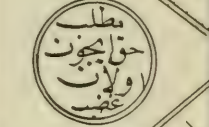 مطلب
حق ایچون
اولان
غضب